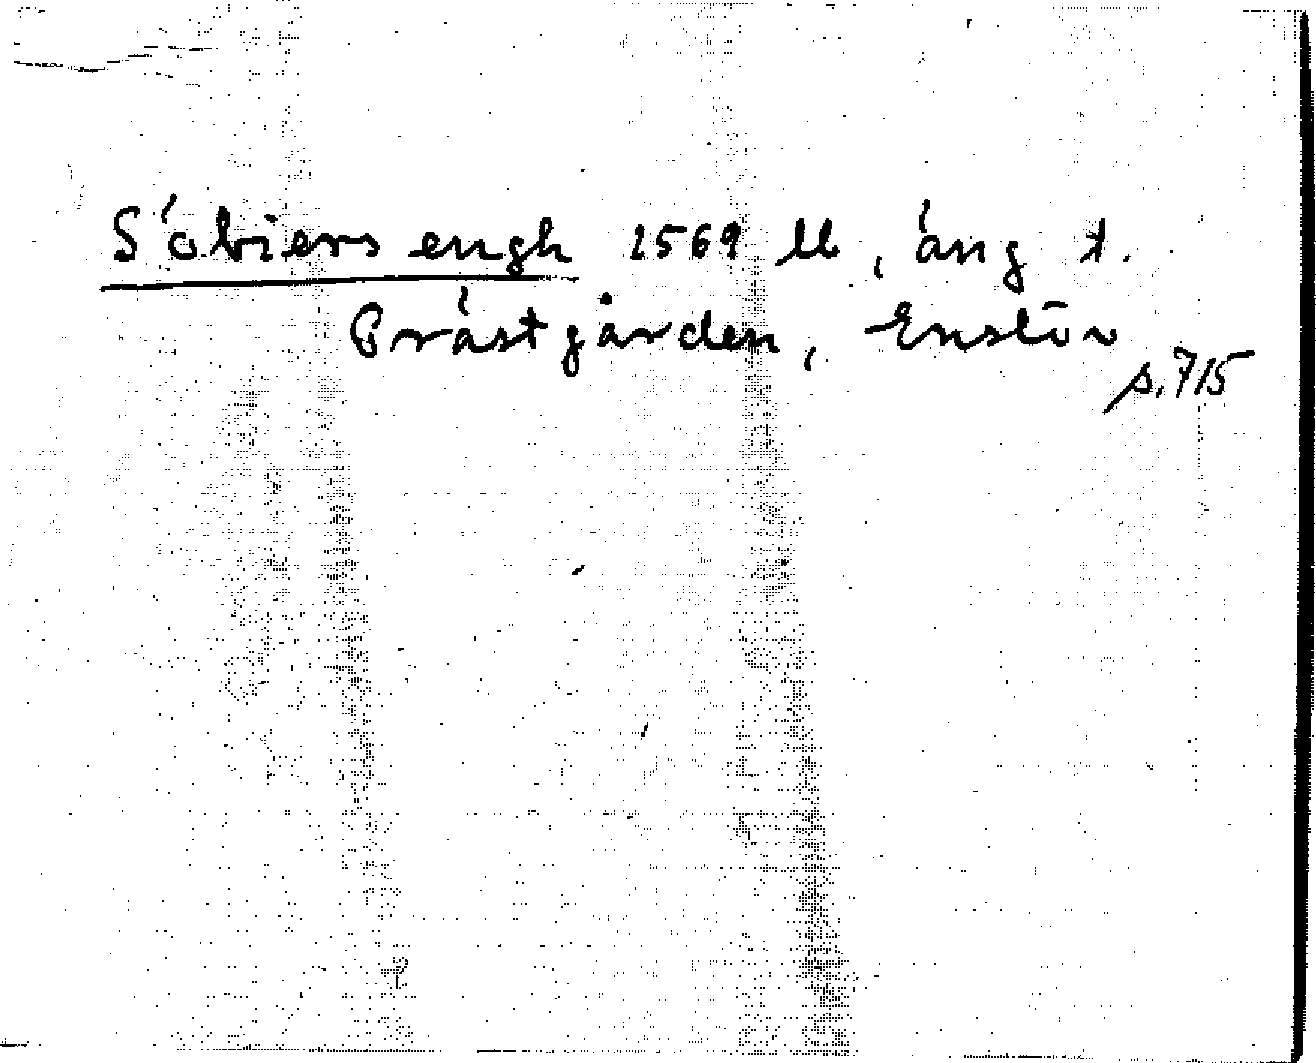 Söbiers engh 1569 Ub, äng t.
Prästgården, Enslöv
s. 715